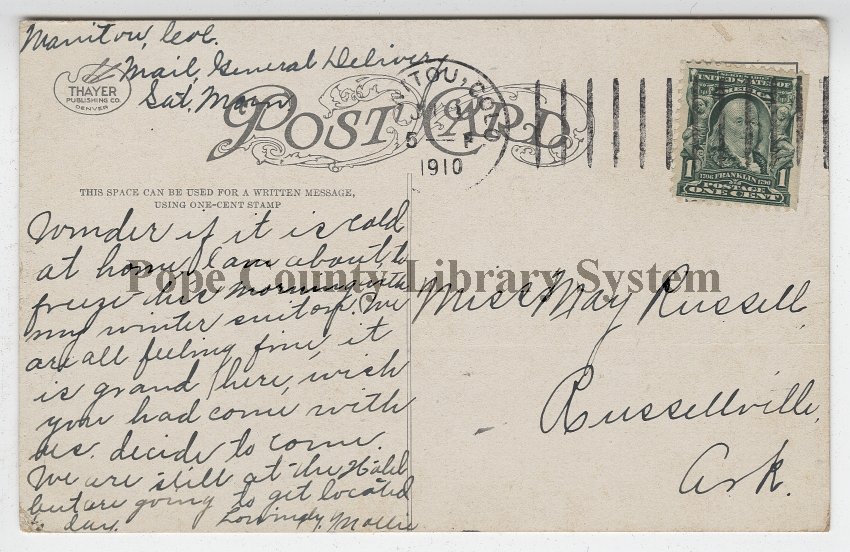 Manitou, Col.
Mail, General Delivery
Sat, Morn
THAYER
PUBLISHING CO.
DENVER
POST CARD
TOU, COLO
5
1910
UNITED STATES OF
AMERICA
1
1706 FRANKLIN 1790
1
POSTAGE
ONE CENT
THIS SPACE CAN BE USED FOR A WRITTEN MESSAGE,
USING ONE-CENT STAMP
Wonder if it is cold
at home, I am about to
freeze this morning with
my winter suit on. We
are all feeling fine, it
is grand here, wish
you had come with
us. decide to come.
We are still at the Hotel
but are going to get located
to day. Lovingly, Mollie
Pope County Library System
Miss May Russell,
Russellville,
Ark.